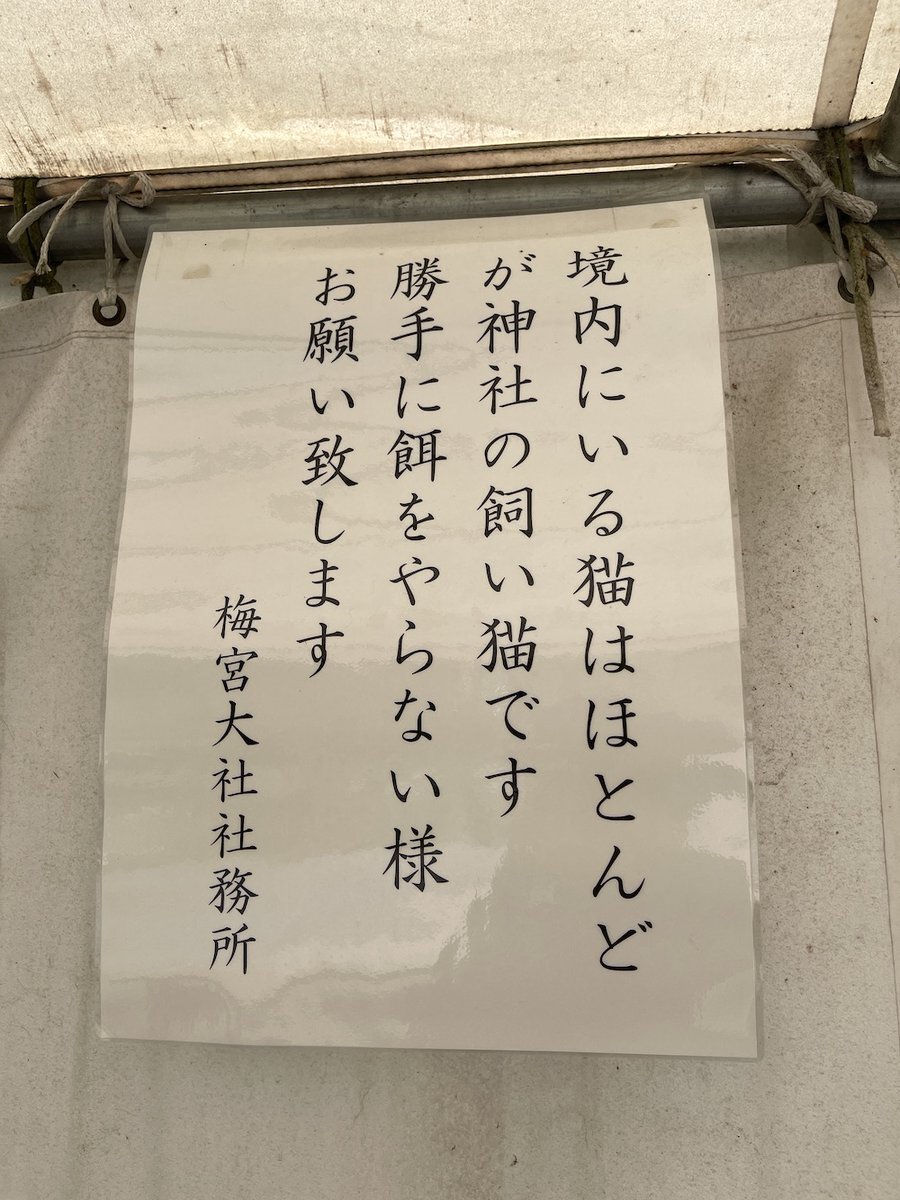 境内にいる猫はほとんど
が神社の飼い猫です
勝手に餌をやらない様
お願い致します
梅宮大社社務所